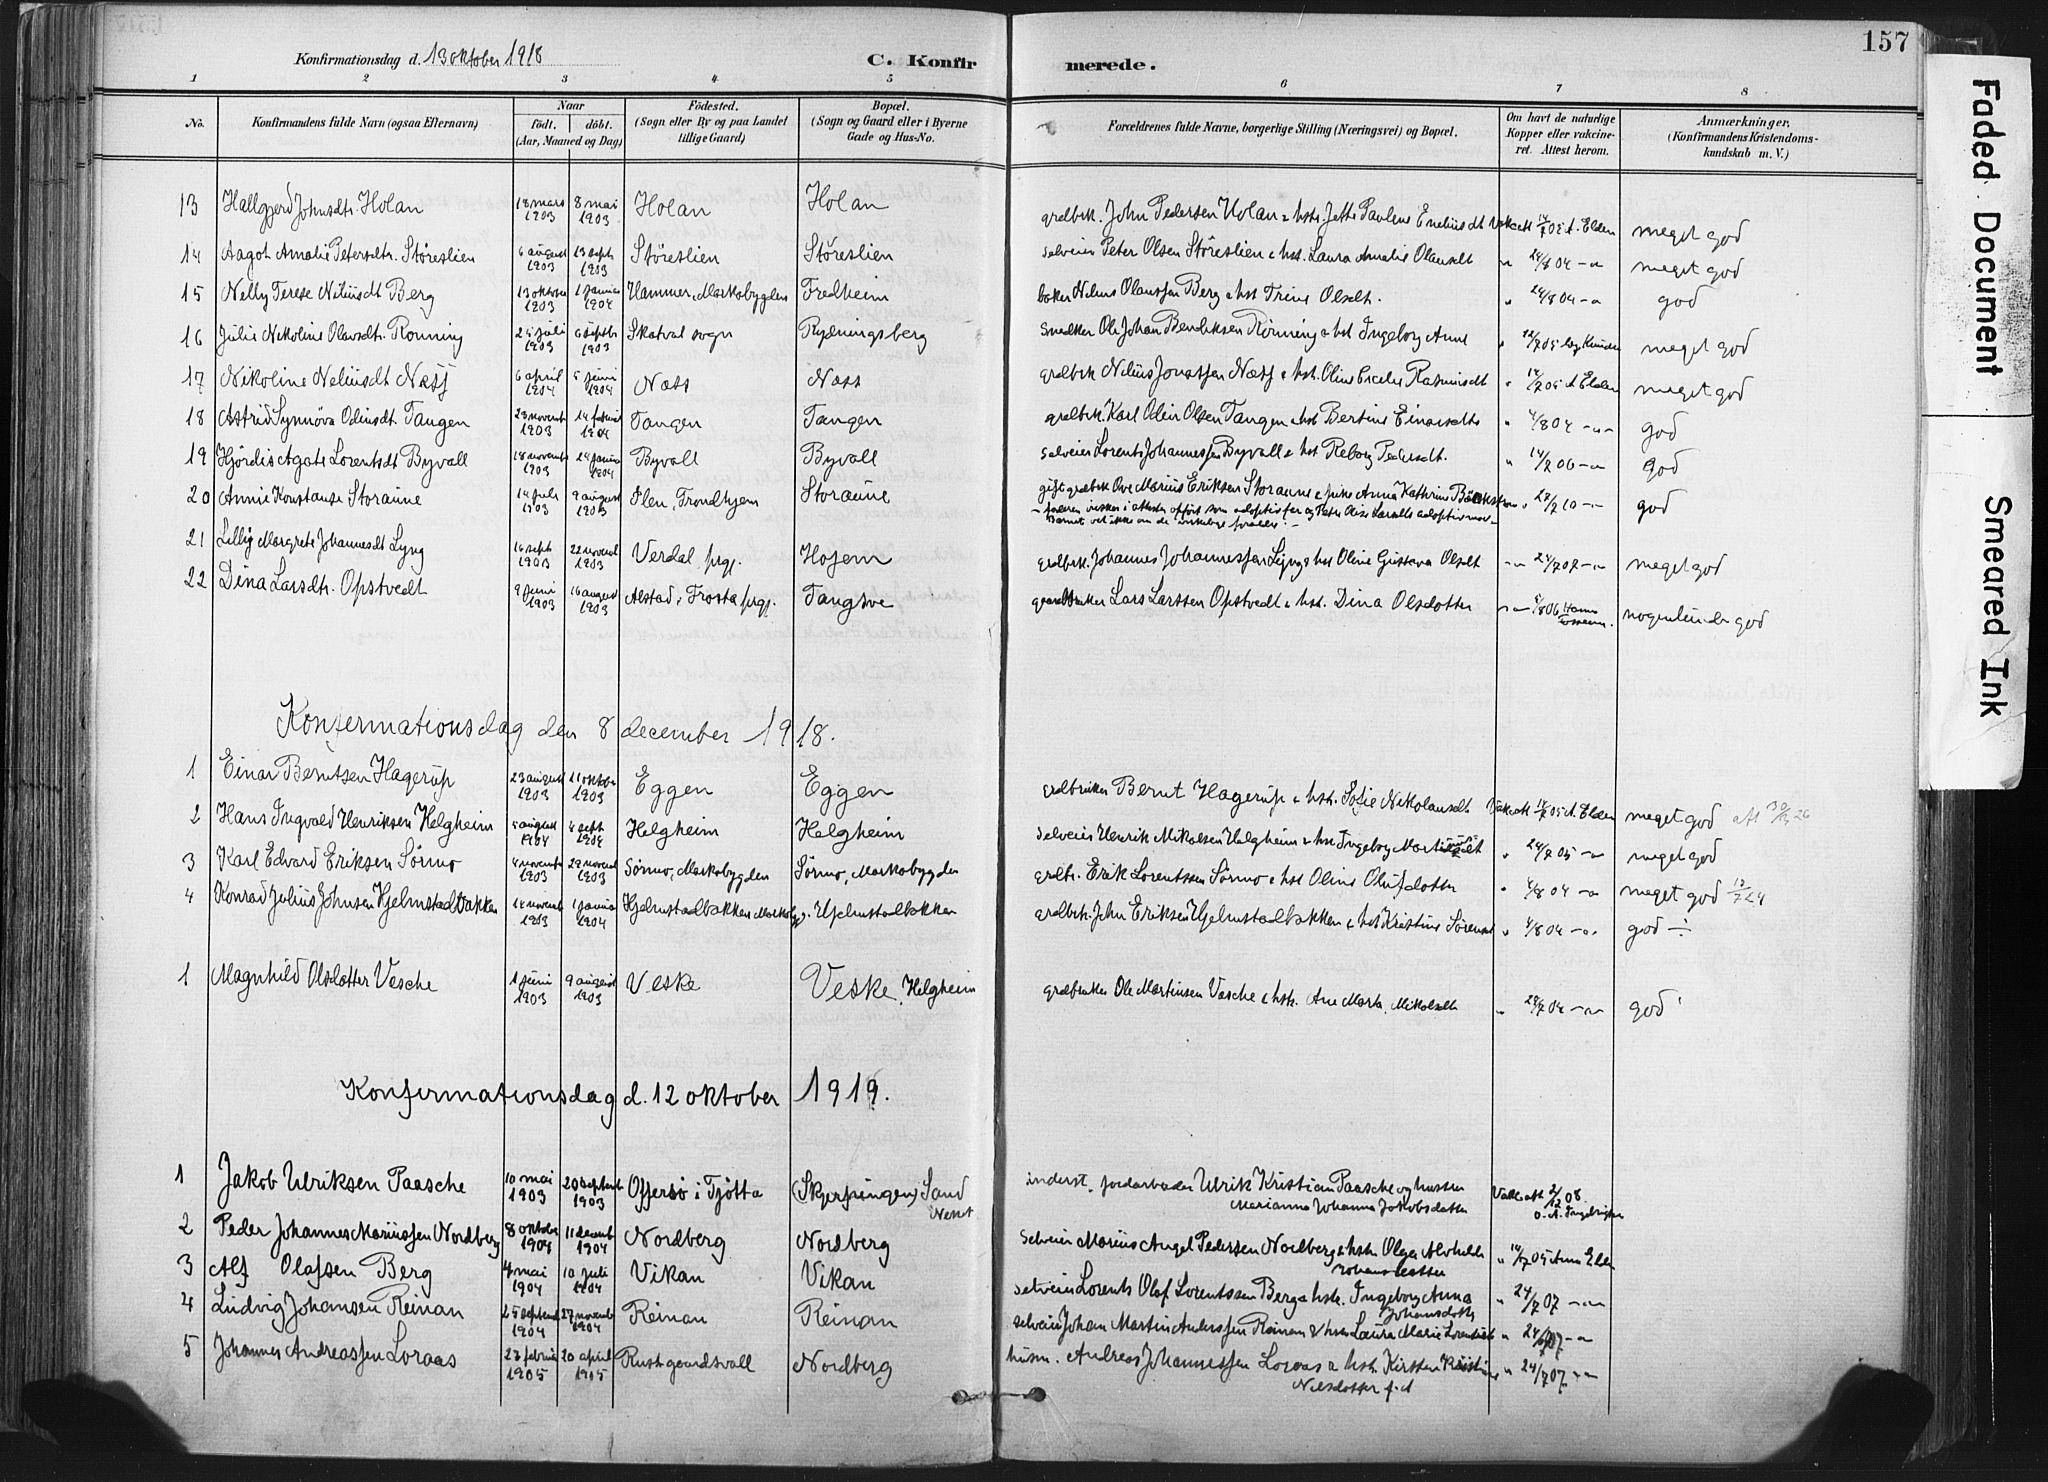 157
Konfirmationsdag d. 13 oktober 1918
C. Konfirmerede.
1 2 3 4 5 6 7 8
No.
Konfirmandens fulde Navn (ogsaa Efternavn)
Naar
født. døbt.
(Aar, Maaned og Dag)
Fødested.
(Sogn eller By og paa Landet
tillige Gaard)
Bopæl.
(Sogn og Gaard eller i Byerne
Gade og Hus-No.
Forældrenes fulde Navne, borgerlige Stilling (Næringsvei) og Bopæl.
Om havt de naturlige
Kopper eller vakcine-
ret. Attest herom.
Anmærkninger,
(Konfirmandens Kristendoms-
kundskab m. V.)
13 Hallgjerd Johnsdtr. Holan 18 mars 1903 8 mai 1903 Holan Holan grdbrk. John Pedersen Holan & hstr. Jette Pauline 14/7 05 A. Elden meget god
14 Aagot Amalie Petersdtr. Støreslien 6 august 1903 13 sept 1903 Støreslien Støreslien selveier Peter Olsen Støreslien & hst. Laura Amalie Olausdt " 24/8 04 -"- meget god
15 Nelly Terese Niliusdt Berg 13 oktober 1903 1 januar 1904 Hammer, Markabygden Fredheim baker Nilius Olaussen Berg & hst Trine Olsdt. " 24/8 04 -"- god
16 Julie Nikoline Olavsdtr. Rønning 25 juli 1903 6 septb 1903 Skatval sogn Rydningsberg Smedker Ole Johan Bendiksen Rønning & hst Ingeborg Anne " 12/7 05 meget god
17 Nikoline Neliusdt Næss 6 april 1904 5 juni 1904 Næss Næss grdbrk Nelius Jonassen Næss & hst. Oline Rasmusdt " 14/7 05 A Elden meget god
18 Astrid Synnøva Odinsdt. Tangen 23 novemb 1903 14 februar 1904 Tangen Tangen grdbrk. Karl Odin Olsen Tangen & hst Bertine Einarsdtr " 4/8 04 -"- god
19 Hjørdis Agate Lorentsdt Byvall 18 novemb 1903 24 januar 1904 Byvall Byvall selveier Lorents Johannessen Byvall & hst Reborg Pedersdt. " 14/7 06 -"- god
20 Annie Konstanse Storaune 14 juli 1903 9 august 1903 Ilen, Trondhjem Storaune gift grdbrk Ove Marius Eriksen Storaune & pike Anna Kathrine " 27/7 10 -"- god
21 Lilly Margrete Johannesdt Lyng 16 sept 1903 22 novemb 1903 Verdal prgj. Hojem grdbrk. Johannes Johannessen Lyng & hst Oline Gustava Olsdt -"- 24/7 07 -"- meget god
22 Dina Larsdtr. Opstvedt 9 juni 1903 16 august 1903 Alstad i Frosta prgj. Tangsve gaardbruker Lars Larssen Opstvedt & hst. Dina Olsdotter -"- 8/8 06 nogenlunde god
Konfermationsdag den 8 december 1918.
1 Einar Berntsen Hagerup 23 august 1903 11 oktobe 1903 Eggen Eggen grdbruker Bernt Hagerup & hstr. Sofie Nikolausdt Vakcatt 14/7 05 A. Elden meget god
2 Hans Ingvald Henriksen Helgheim 5 august 1904 4 sept 1904 Helgheim Helgheim selveier Henrik Mikalsen Helgheim & hst Ingeborg " 24/7 05 -"- meget god
3 Karl Edvard Eriksen Sørmo 4 novemb 1903 29 novemb 1903 Sørmo, Markabygden Sørmo, Markabygden grdbr. Erik Lorentssen Sørmo & hst Oline Olufsdotter " 4/8 04 -"- meget god 12/7 24
4 Konrad Julius Johnsen Hjelmstadbakken 14 novemb 1903 1 januar 1904 Hjelmstadbakken Markabyg. Hjelmstadbakken grdbrk. John Eriksen Hjelmstadbakken & hst Kristine Sørensd " 4/8 04 -"- god ÷
1 Magnhild Olsdatter Vesche 1 juni 1903 9 august 1903 Veske Veske, Helgheim grdbruker Ole Martinsen Vasche & hstr. Ane Marta Mikalsdtr " 28/7 04 -"- god
Konfermationsdag d. 12 oktober 1919.
1 Jakob Ulriksen Paasche 10 mai 1903 20 septemb 1903 Offersø i Tjøtta (Skjerpingen) Sand Nesset inderst, jordarbeider Ulrik Kristian Paasche og hustru
Marianna Johanna Jakobsdatter Vakc. att 2/12 08
2 Peder Johannes Mariussen Nordberg 8 oktobe 1904 11 decemb 1904 Nordberg Nordberg Selveier Marius Angel Pedersen Nordberg & hstr Olga Alvhilde
Johansdatter " 14/7 05 Anna Elden
3 Alf Olafsen Berg 4 mai 1904 10 juli 1904 Vikan Vikan selveier Lorents Olaf Lorentssen Berg & hstr. Ingeborg Anna
Johansdotter " 24/7 07 -"-
4 Ludvig Johansen Reinan 25 septemb 1904 27 novemb 1904 Reinan Reinan selveier Johan Martin Anderssen Reinan & hstr Laura Marie Lorentsdt " 24/7 07 -"-
5 Johannes Andreassen Loraas 23 februar 1905 20 april 1905 Rustgaardsvall Nordberg husm. Andreas Johannessen Loraas & hstr. Kirsten
Nilsdotter f.d " 24/7 07 -"-
Faded Document
Smeared Ink